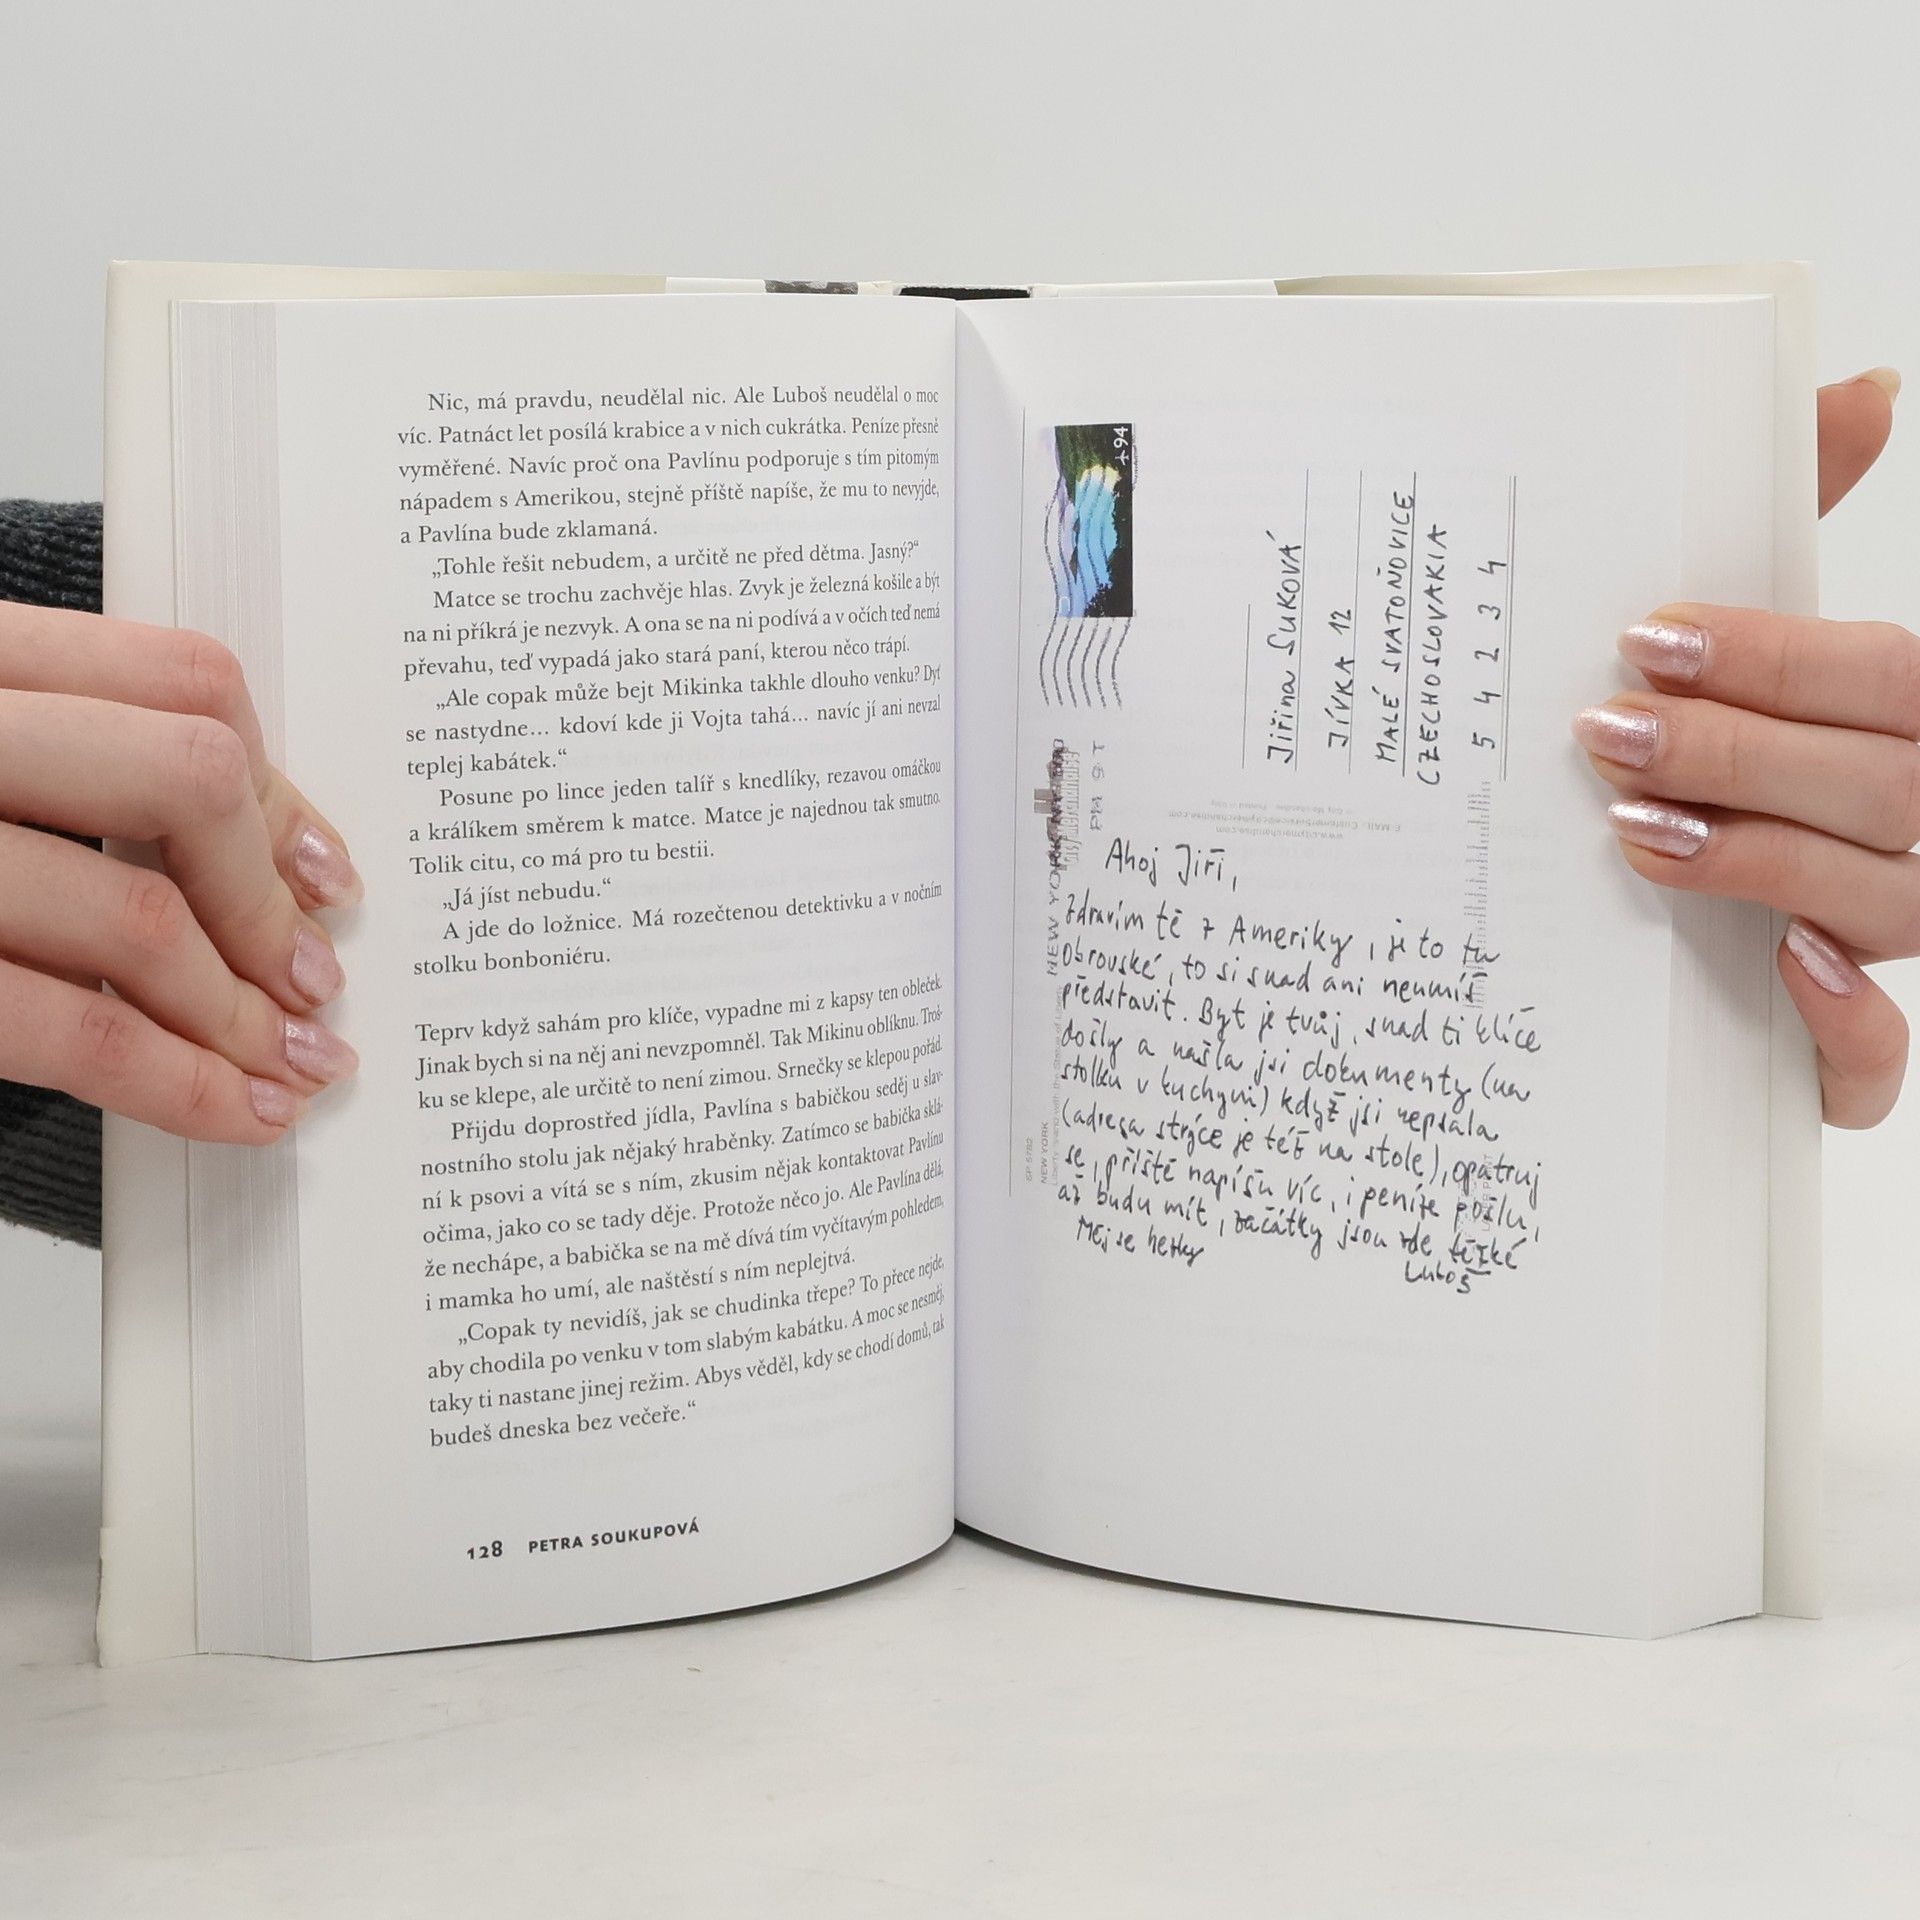 Nic, má pravdu, neudělal nic. Ale Luboš neudělal o moc
víc. Patnáct let posílá krabice a v nich cukrátka. Peníze přesně
vyměřené. Navíc proč ona Pavlínu podporuje s tím pitomým
nápadem s Amerikou, stejně příště napíše, že mu to nevyjde,
a Pavlína bude zklamaná.
„Tohle řešit nebudem, a určitě ne před dětma. Jasný?“
Matce se trochu zachvěje hlas. Zvyk je železná košile a být
na ni příkrá je nezvyk. A ona se na ni podívá a v očích teď nemá
převahu, teď vypadá jako stará paní, kterou něco trápí.
„Ale copak může bejt Mikinka takhle dlouho venku? Dyť
se nastydne… kdoví kde ji Vojta tahá… navíc jí ani nevzal
teplej kabátek.“
Posune po lince jeden talíř s knedlíky, rezavou omáčkou
a králíkem směrem k matce. Matce je najednou tak smutno.
Tolik citu, co má pro tu bestii.
„Já jíst nebudu.“
A jde do ložnice. Má rozečtenou detektivku a v nočním
stolku bonboniéru.
Teprv když sahám pro klíče, vypadne mi z kapsy ten obleček.
Jinak bych si na něj ani nevzpomněl. Tak Mikinu oblíknu. Troš-
ku se klepe, ale určitě to není zimou. Srnečky se klepou pořád.
Přijdu doprostřed jídla, Pavlína s babičkou seděj u slav-
nostního stolu jak nějaký hraběnky. Zatímco se babička sklá-
ní k psovi a vítá se s ním, zkusim nějak kontaktovat Pavlínu
očima, jako co se tady děje. Protože něco jo. Ale Pavlína dělá,
že nechápe, a babička se na mě dívá tím vyčítavým pohledem,
i mamka ho umí, ale naštěstí s ním neplejtvá.
„Copak ty nevidíš, jak se chudinka třepe? To přece nejde,
aby chodila po venku v tom slabým kabátku. A moc se nesměj,
taky ti nastane jinej režim. Abys věděl, kdy se chodí domů, tak
budeš dneska bez večeře.“
128 PETRA SOUKUPOVÁ
94
Jiřina Suková
Jívka 12
MALÉ SVATOŇOVICE
CZECHOSLOVAKIA
5 4 2 3 4
NEW YORK
PM 9 T
www.citymerchandise.com
NEW YORK
Ahoj Jiří,
zdravím tě z Ameriky, je to tu
obrovské, to si snad ani neumíš
představit. Byt je tvůj, snad ti klíče
došly a našla jsi dokumenty (na
stolku v kuchyni) když jsi nepsala
(adresa strýce je též na stole), opatruj
se, příště napíšu víc, i peníze pošlu,
až budu mít, začátky jsou zde těžké
Měj se hezky
Luboš